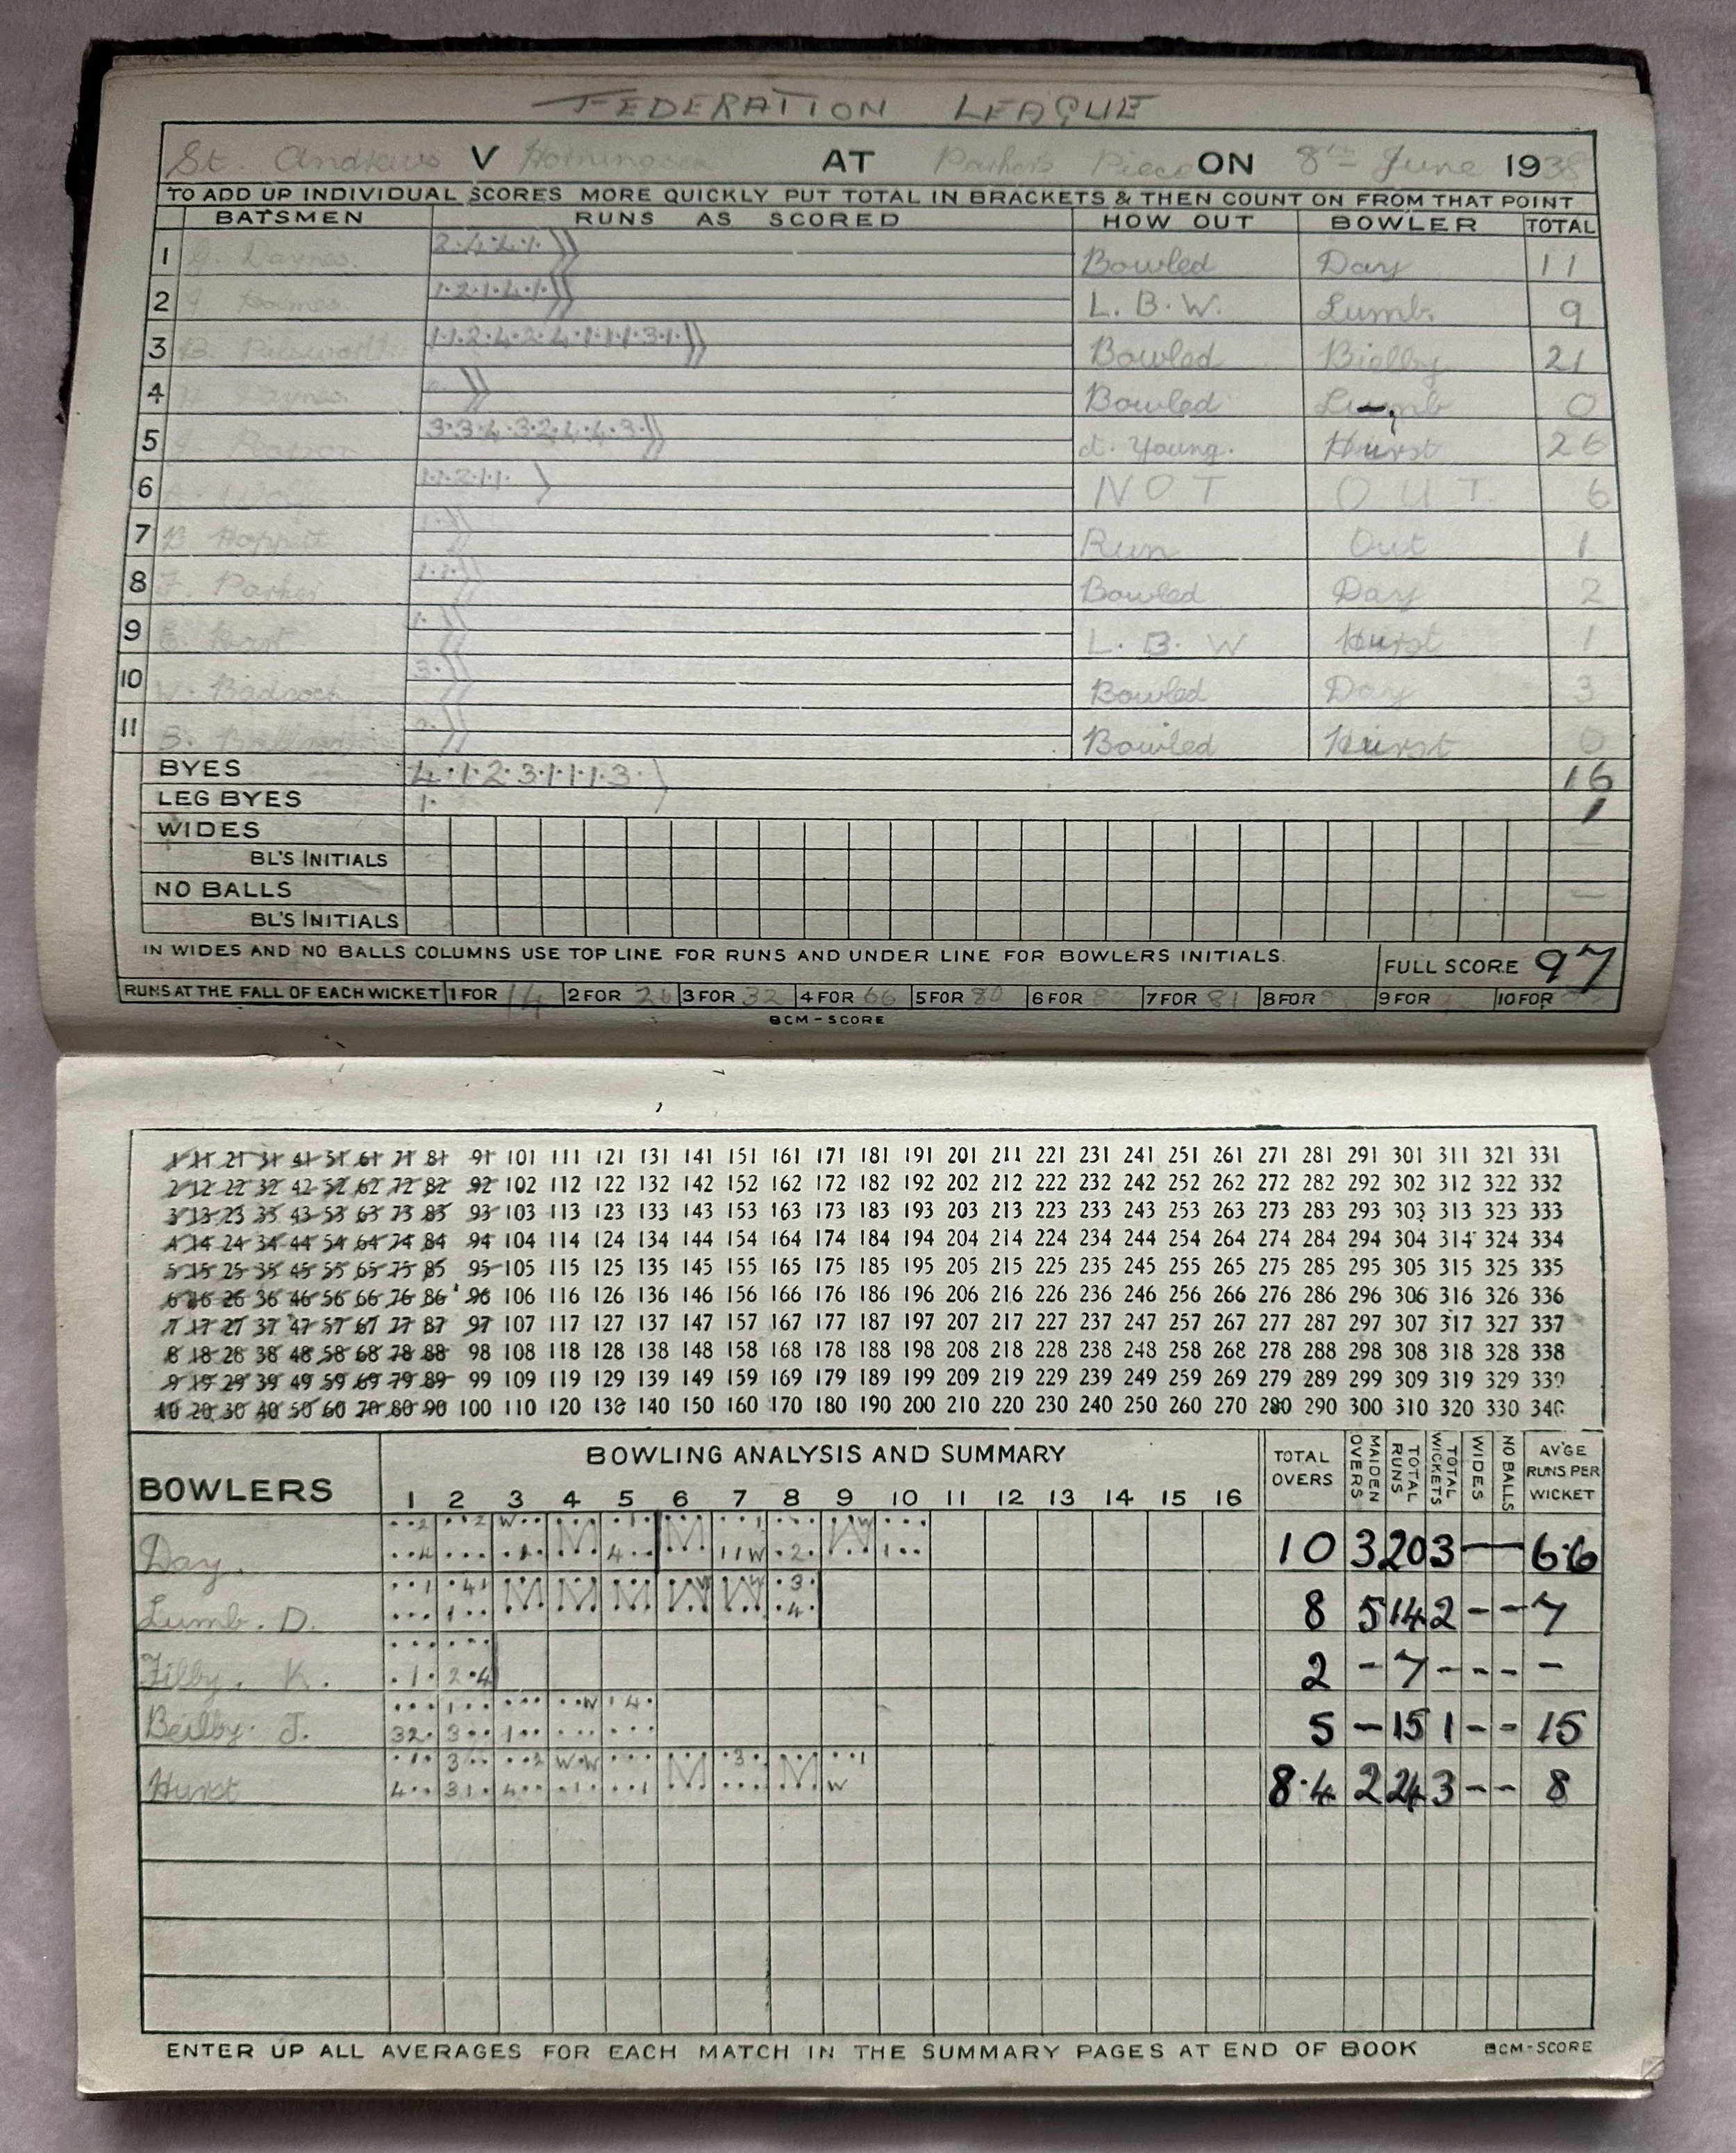 FEDERATION LEAGUE
St. Andrews V Horningsea AT Parker's Piece ON 8th June 1938
TO ADD UP INDIVIDUAL SCORES MORE QUICKLY PUT TOTAL IN BRACKETS & THEN COUNT ON FROM THAT POINT
BATSMEN RUNS AS SCORED HOW OUT BOWLER TOTAL
1 Daynes. 2.4.4.1. Bowled Day 11
2 Holmes 1.2.1.4.1. L.B.W. Lumb. 9
3 B. 1.1.2.4.2.4.1.1.1.3.1. Bowled Bielby 21
4 Daynes. Bowled Lumb 0
5 3.3.4.3.2.4.4.3. ct. Young. Hurst 26
6 1.1.2.1.1. NOT OUT. 6
7 B Hoppett 1. Run Out 1
8 F. Parker 1.1. Bowled Day 2
9 E. Hart 1. L.B.W Hurst 1
10 W. Badcock 3. Bowled Day 3
11 Bowled Hurst 0
BYES 4.1.2.3.1.1.1.3. 16
LEG BYES 1. 1
WIDES —
BL'S INITIALS
NO BALLS —
BL'S INITIALS
IN WIDES AND NO BALLS COLUMNS USE TOP LINE FOR RUNS AND UNDER LINE FOR BOWLERS INITIALS. FULL SCORE 97
RUNS AT THE FALL OF EACH WICKET 1 FOR 14 2 FOR 26 3 FOR 32 4 FOR 66 5 FOR 80 6 FOR 80 7 FOR 81 8 FOR 9 FOR 10 FOR
BCM-SCORE
1 11 21 31 41 51 61 71 81 91 101 111 121 131 141 151 161 171 181 191 201 211 221 231 241 251 261 271 281 291 301 311 321 331
2 12 22 32 42 52 62 72 82 92 102 112 122 132 142 152 162 172 182 192 202 212 222 232 242 252 262 272 282 292 302 312 322 332
3 13 23 33 43 53 63 73 83 93 103 113 123 133 143 153 163 173 183 193 203 213 223 233 243 253 263 273 283 293 303 313 323 333
4 14 24 34 44 54 64 74 84 94 104 114 124 134 144 154 164 174 184 194 204 214 224 234 244 254 264 274 284 294 304 314 324 334
5 15 25 35 45 55 65 75 85 95 105 115 125 135 145 155 165 175 185 195 205 215 225 235 245 255 265 275 285 295 305 315 325 335
6 16 26 36 46 56 66 76 86 96 106 116 126 136 146 156 166 176 186 196 206 216 226 236 246 256 266 276 286 296 306 316 326 336
7 17 27 37 47 57 67 77 87 97 107 117 127 137 147 157 167 177 187 197 207 217 227 237 247 257 267 277 287 297 307 317 327 337
8 18 28 38 48 58 68 78 88 98 108 118 128 138 148 158 168 178 188 198 208 218 228 238 248 258 268 278 288 298 308 318 328 338
9 19 29 39 49 59 69 79 89 99 109 119 129 139 149 159 169 179 189 199 209 219 229 239 249 259 269 279 289 299 309 319 329 339
10 20 30 40 50 60 70 80 90 100 110 120 130 140 150 160 170 180 190 200 210 220 230 240 250 260 270 280 290 300 310 320 330 340
BOWLERS BOWLING ANALYSIS AND SUMMARY TOTAL OVERS MAIDEN OVERS TOTAL RUNS TOTAL WICKETS WIDES NO BALLS AV'GE RUNS PER WICKET
1 2 3 4 5 6 7 8 9 10 11 12 13 14 15 16
Day. 10 3 20 3 — 6.6
Lumb. D. 8 5 14 2 - - 7
Filby. K. 2 - 7 - - - -
Beilby. J. 5 - 15 1 - - 15
Hurst 8.4 2 24 3 - - 8
ENTER UP ALL AVERAGES FOR EACH MATCH IN THE SUMMARY PAGES AT END OF BOOK BCM-SCORE